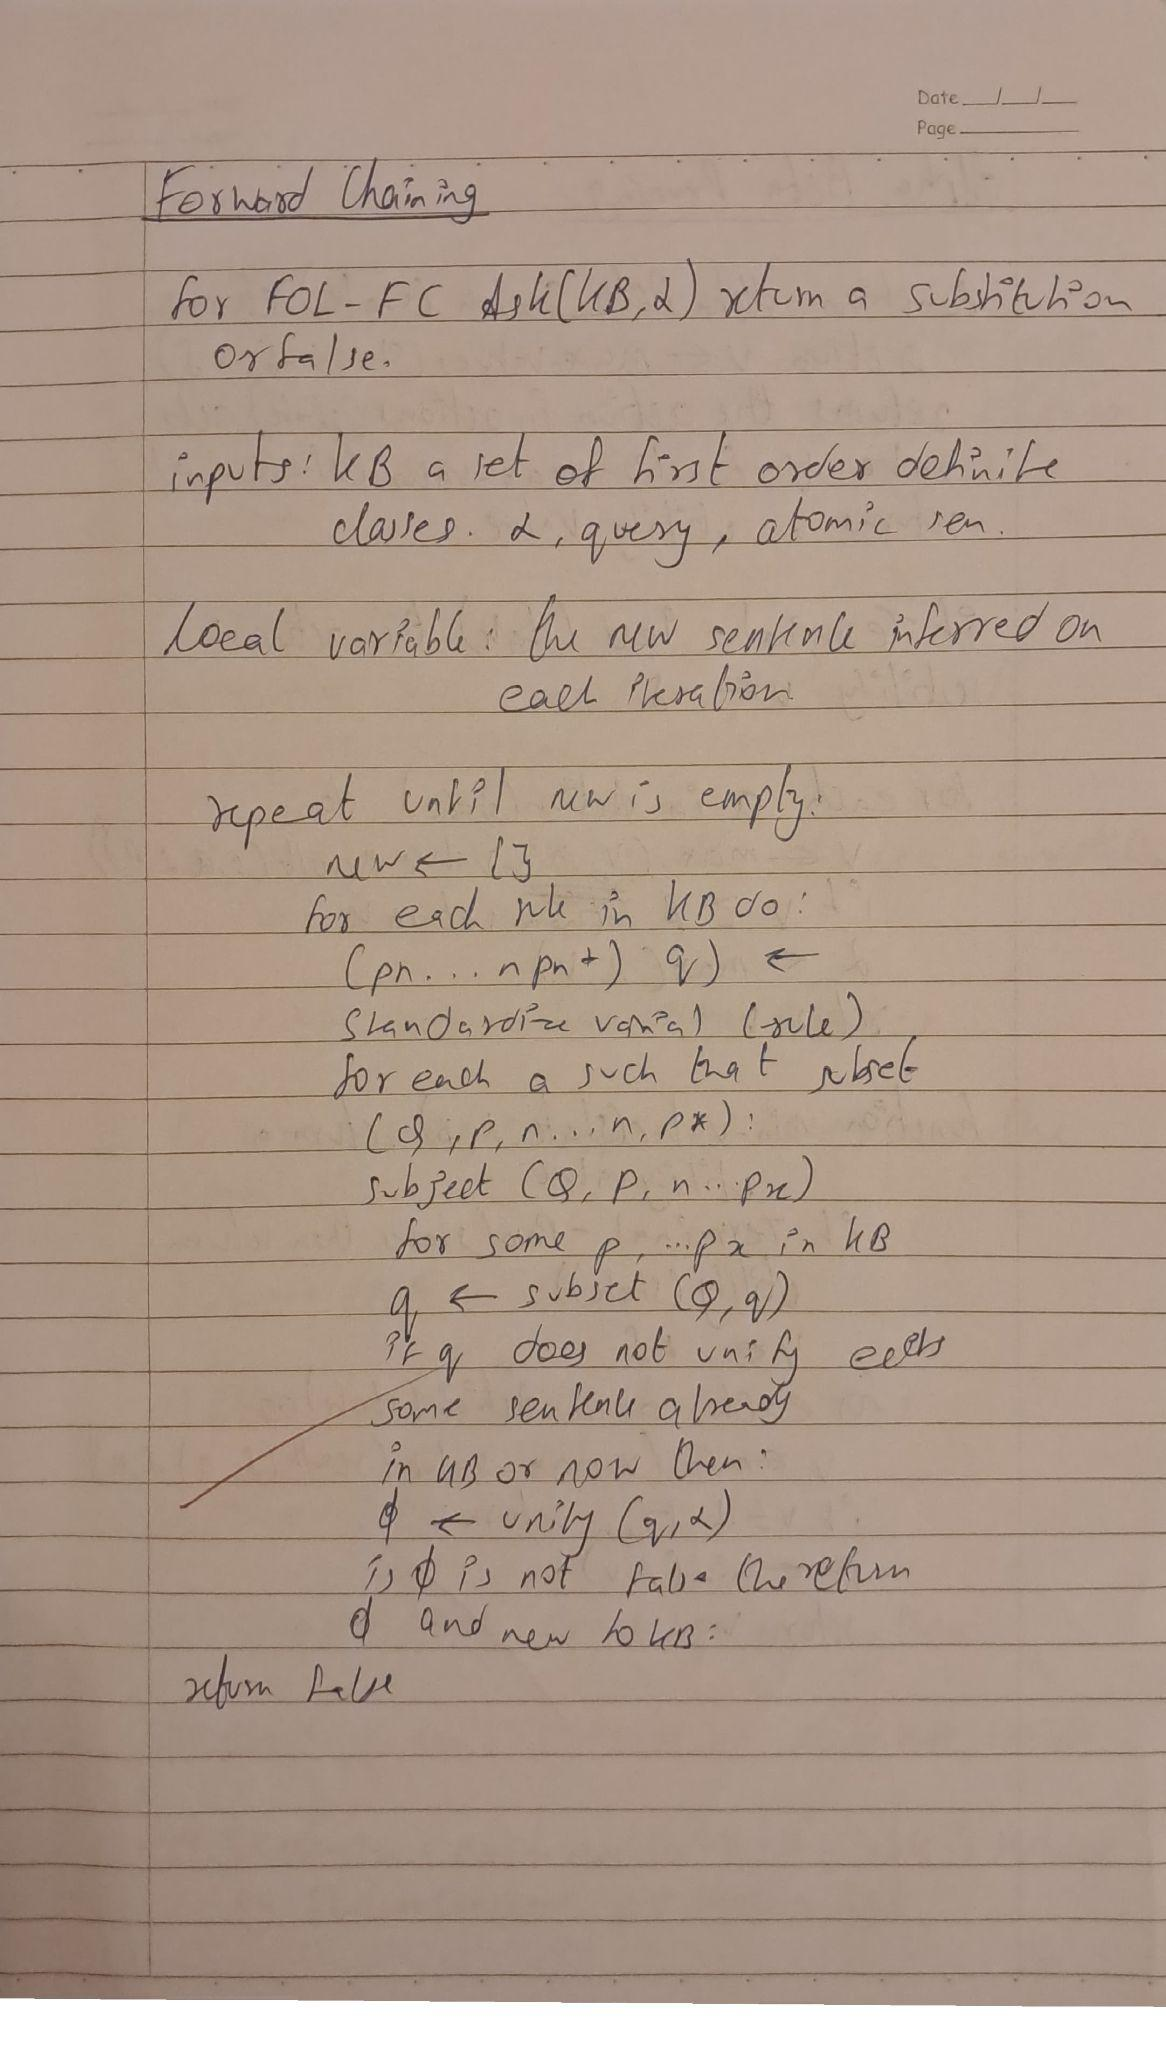 Date __/__/__
Page ______
Forward Chaining
for FOL-FC Ask(KB,α) return a substitution
or false.
inputs: KB a set of first order definite
classes. α, query, atomic sen.
Local variable: the new sentence inferred on
each iteration
repeat until new is empty:
new ← {}
for each rule in KB do:
(pn...n pn+) q) ←
Standardize varial (rule)
for each a such that subset
(Q, p, n...n, p*):
subject (Q, p, n...px)
for some p, ...px in KB
q ← subset (Q, q)
if q does not unify
some sentence already
in KB or now then:
ϕ ← unify (q, α)
is ϕ is not false the return
ϕ and new to KB:
return false